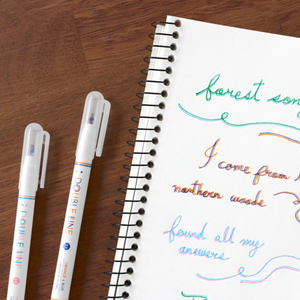 forest son
I come from
northern woods
found all my
answers
DOUBLE LINE
DOUBLE LINE